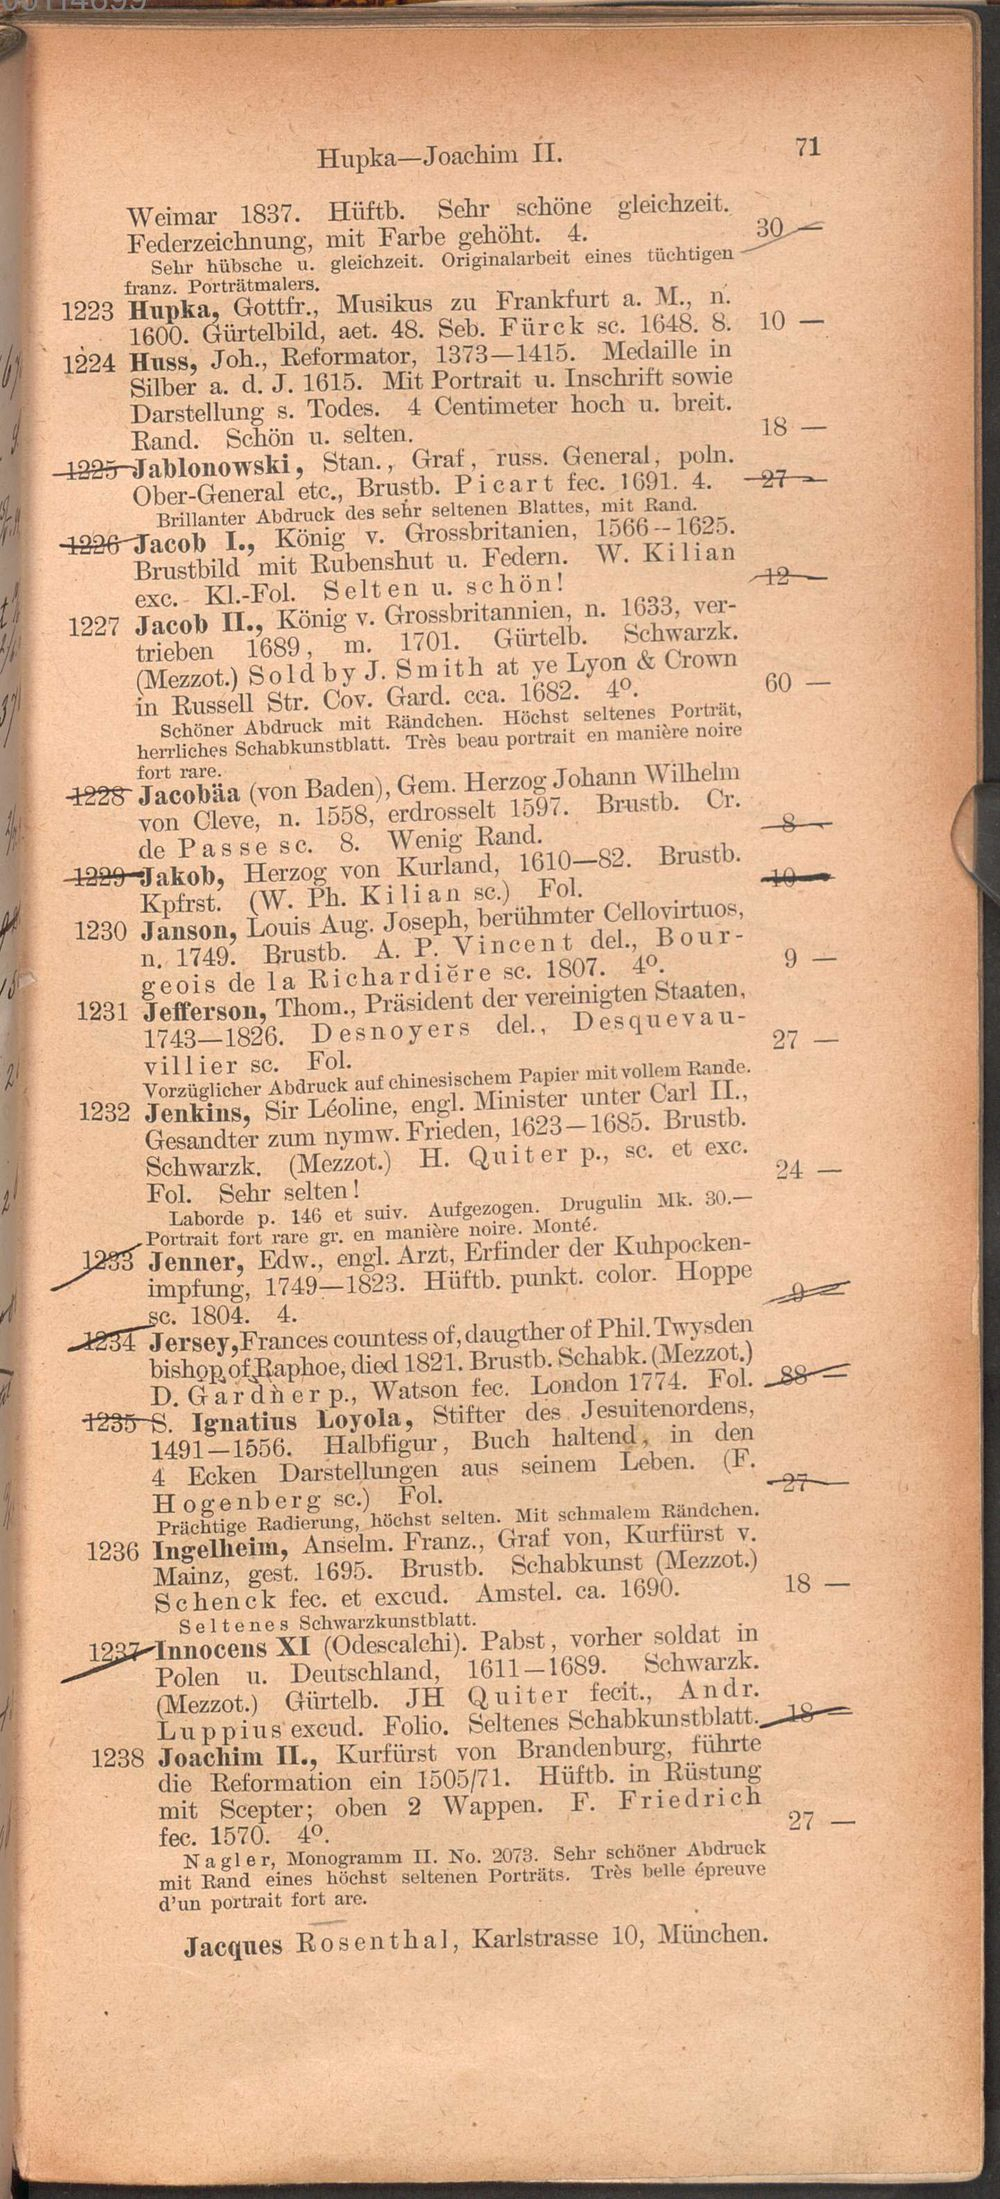 Hupka—Joachim II. 71
Weimar 1837. Hüftb. Sehr schöne gleichzeit.
Federzeichnung, mit Farbe gehöht. 4. 30 —
Sehr hübsche u. gleichzeit. Originalarbeit eines tüchtigen
franz. Porträtmalers.
1223 Hupka, Gottfr., Musikus zu Frankfurt a. M., n.
1600. Gürtelbild, aet. 48. Seb. Fürck sc. 1648. 8. 10 —
1224 Huss, Joh., Reformator, 1373—1415. Medaille in
Silber a. d. J. 1615. Mit Portrait u. Inschrift sowie
Darstellung s. Todes. 4 Centimeter hoch u. breit.
Rand. Schön u. selten. 18 —
1225 Jablonowski, Stan., Graf, russ. General, poln.
Ober-General etc., Brustb. Picart fec. 1691. 4. 27 —
Brillanter Abdruck des sehr seltenen Blattes, mit Rand.
1226 Jacob I., König v. Grossbritanien, 1566—1625.
Brustbild mit Rubenshut u. Federn. W. Kilian
exc. Kl.-Fol. Selten u. schön! 12 —
1227 Jacob II., König v. Grossbritannien, n. 1633, ver-
trieben 1689, m. 1701. Gürtelb. Schwarzk.
(Mezzot.) Sold by J. Smith at ye Lyon & Crown
in Russell Str. Cov. Gard. cca. 1682. 4º. 60 —
Schöner Abdruck mit Rändchen. Höchst seltenes Porträt,
herrliches Schabkunstblatt. Très beau portrait en manière noire
fort rare.
1228 Jacobäa (von Baden), Gem. Herzog Johann Wilhelm
von Cleve, n. 1558, erdrosselt 1597. Brustb. Cr.
de Passe sc. 8. Wenig Rand. 8 —
1229 Jakob, Herzog von Kurland, 1610—82. Brustb.
Kpfrst. (W. Ph. Kilian sc.) Fol. 10 —
1230 Janson, Louis Aug. Joseph, berühmter Cellovirtuos,
n. 1749. Brustb. A. P. Vincent del., Bour-
geois de la Richardière sc. 1807. 4º. 9 —
1231 Jefferson, Thom., Präsident der vereinigten Staaten,
1743—1826. Desnoyers del., Desquevau-
villier sc. Fol. 27 —
Vorzüglicher Abdruck auf chinesischem Papier mit vollem Rande.
1232 Jenkins, Sir Léoline, engl. Minister unter Carl II.,
Gesandter zum nymw. Frieden, 1623—1685. Brustb.
Schwarzk. (Mezzot.) H. Quiter p., sc. et exc.
Fol. Sehr selten! 24 —
Laborde p. 146 et suiv. Aufgezogen. Drugulin Mk. 30.—
Portrait fort rare gr. en manière noire. Monté.
1233 Jenner, Edw., engl. Arzt, Erfinder der Kuhpocken-
impfung, 1749—1823. Hüftb. punkt. color. Hoppe
sc. 1804. 4. 9 —
1234 Jersey, Frances countess of, daugther of Phil. Twysden
bishop of Raphoe, died 1821. Brustb. Schabk. (Mezzot.)
D. Gardner p., Watson fec. London 1774. Fol. 88 —
1235 S. Ignatius Loyola, Stifter des Jesuitenordens,
1491—1556. Halbfigur, Buch haltend, in den
4 Ecken Darstellungen aus seinem Leben. (F.
Hogenberg sc.) Fol. 27 —
Prächtige Radierung, höchst selten. Mit schmalem Rändchen.
1236 Ingelheim, Anselm. Franz., Graf von, Kurfürst v.
Mainz, gest. 1695. Brustb. Schabkunst (Mezzot.)
Schenck fec. et excud. Amstel. ca. 1690. 18 —
Seltenes Schwarzkunstblatt.
1237 Innocens XI (Odescalchi). Pabst, vorher soldat in
Polen u. Deutschland, 1611—1689. Schwarzk.
(Mezzot.) Gürtelb. JH Quiter fecit., Andr.
Luppius excud. Folio. Seltenes Schabkunstblatt. 18 —
1238 Joachim II., Kurfürst von Brandenburg, führte
die Reformation ein 1505/71. Hüftb. in Rüstung
mit Scepter; oben 2 Wappen. F. Friedrich
fec. 1570. 4º. 27 —
Nagler, Monogramm II. No. 2073. Sehr schöner Abdruck
mit Rand eines höchst seltenen Porträts. Très belle épreuve
d'un portrait fort are.
Jacques Rosenthal, Karlstrasse 10, München.